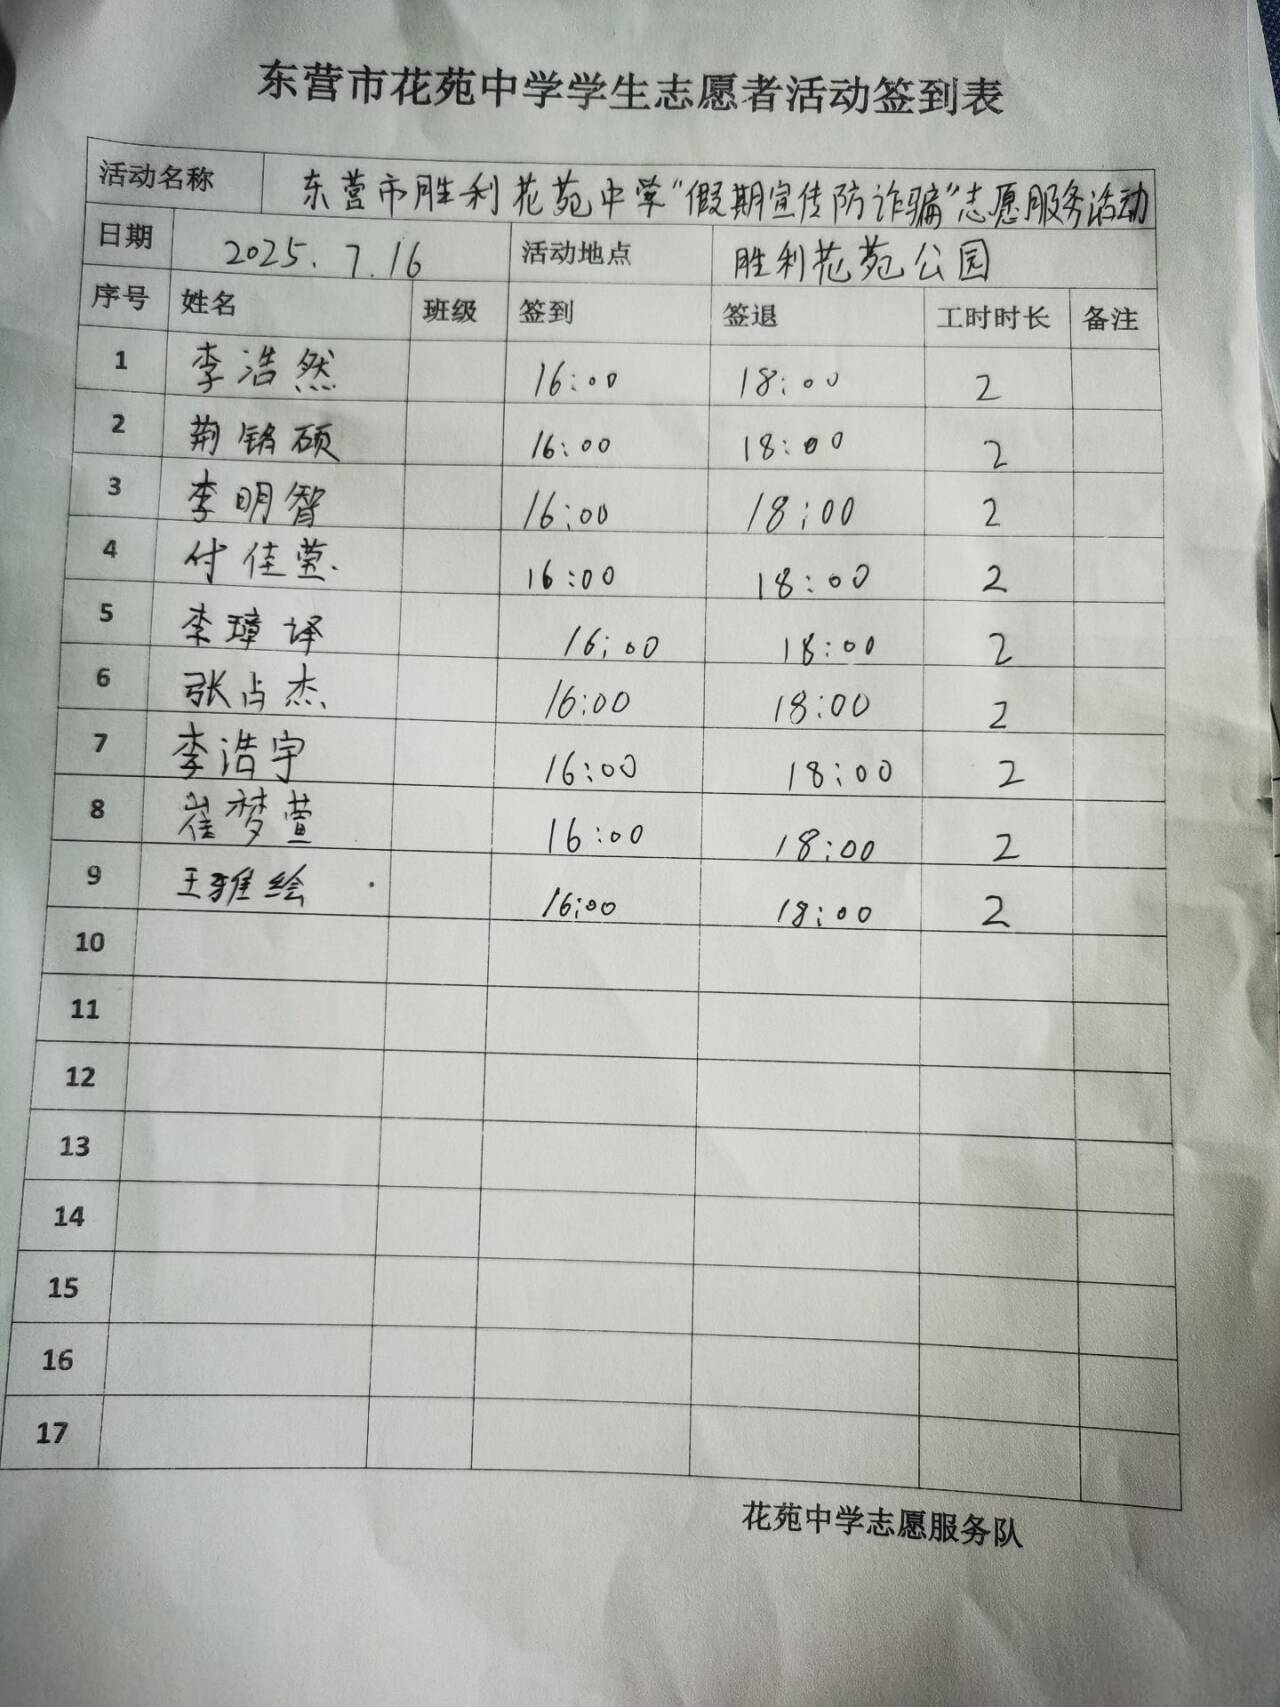 东营市花苑中学学生志愿者活动签到表
活动名称 东营市胜利花苑中学“假期宣传防诈骗”志愿服务活动
日期 2025.7.16 活动地点 胜利花苑公园
序号 姓名 班级 签到 签退 工时时长 备注
1 李浩然 16:00 18:00 2
2 荆铭硕 16:00 18:00 2
3 李明智 16:00 18:00 2
4 付佳萱 16:00 18:00 2
5 李璋译 16:00 18:00 2
6 张占杰 16:00 18:00 2
7 李浩宇 16:00 18:00 2
8 崔梦萱 16:00 18:00 2
9 王雅绘 16:00 18:00 2
10
11
12
13
14
15
16
17
花苑中学志愿服务队